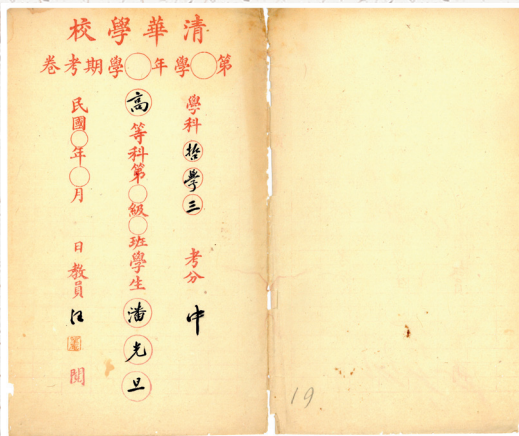 清華學校
第○學年○學期考卷
學科 哲學三 考分 中
高等科第○級○班學生 潘光旦
民國○年○月 日教員 汪 閱
19